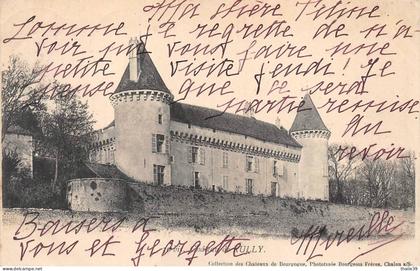 Ma chère Titine
Comme
je regrette de n'a-
voir pu vous faire une
petite visite jeudi! Je
espère que
partie remise
Au
revoir
Baisers à
vous tous
Georgette
Mireille
SULLY.
Collection des Châteaux de Bourgogne, Phototypie Bourgeois Frères, Chalon